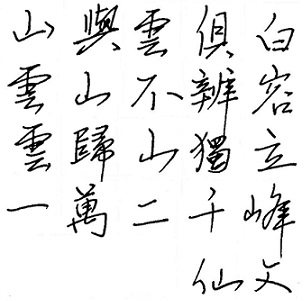 山與雲俱白
雲山不辨容
雲歸山獨立
一萬二千峰
仙文